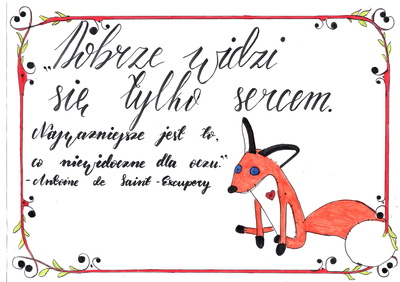 „Dobrze widzi
się tylko sercem.
Najważniejsze jest to,
co niewidoczne dla oczu."
- Antoine de Saint-Exupery